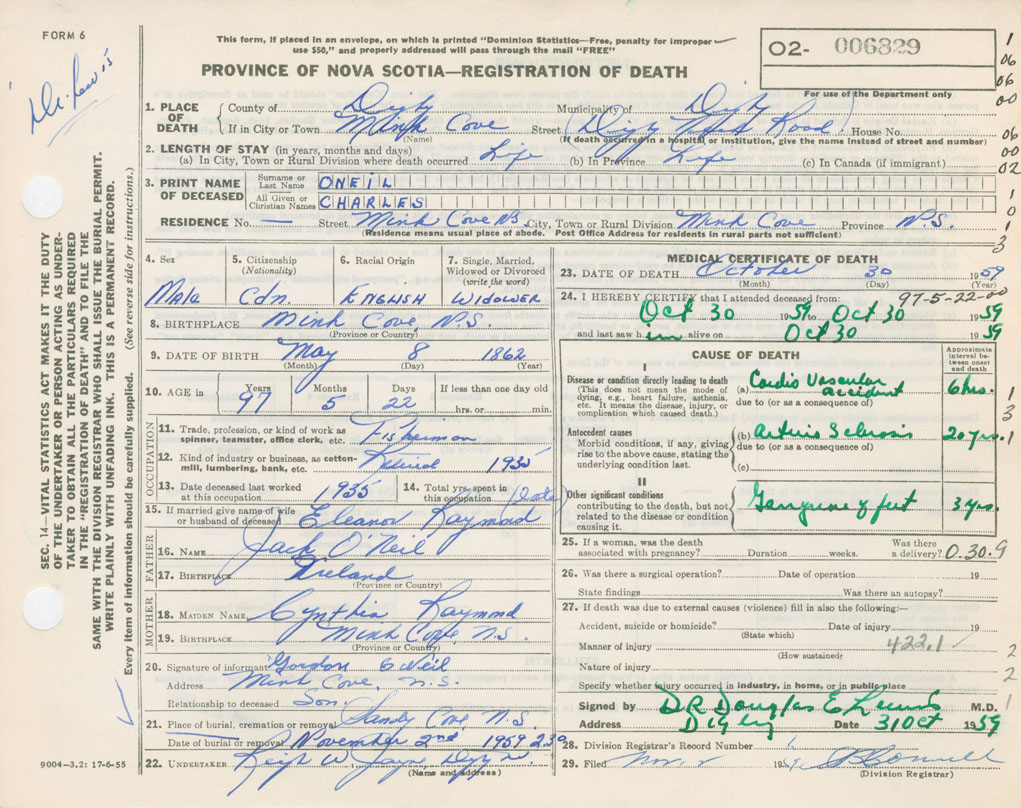 FORM 6
Dr. Lewis
This form, if placed in an envelope, on which is printed "Dominion Statistics—Free, penalty for improper
use $50," and properly addressed will pass through the mail "FREE"
PROVINCE OF NOVA SCOTIA—REGISTRATION OF DEATH
O2- 006829
For use of the Department only
1
06
06
00
06
00
02
1
0
1
3
1. PLACE OF DEATH
County of Digby Municipality of Digby
If in City or Town Mink Cove Street (Digby Neck Road) House No.
(Name) (If death occurred in a hospital or institution, give the name instead of street and number)
2. LENGTH OF STAY (in years, months and days)
(a) In City, Town or Rural Division where death occurred Life (b) In Province Life (c) In Canada (if immigrant)
3. PRINT NAME OF DECEASED
Surname or Last Name ONEIL
All Given or Christian Names CHARLES
RESIDENCE No. — Street Mink Cove N.S. City, Town or Rural Division Mink Cove Province N.S.
(Residence means usual place of abode. Post Office Address for residents in rural parts not sufficient)
SEC. 14—VITAL STATISTICS ACT MAKES IT THE DUTY
OF THE UNDERTAKER OR PERSON ACTING AS UNDER-
TAKER TO OBTAIN ALL THE PARTICULARS REQUIRED
IN THE "REGISTRATION OF DEATH" AND TO FILE THE
SAME WITH THE DIVISION REGISTRAR WHO SHALL ISSUE THE BURIAL PERMIT.
WRITE PLAINLY WITH UNFADING INK. THIS IS A PERMANENT RECORD.
Every item of information should be carefully supplied. (See reverse side for instructions.)
4. Sex
Male
5. Citizenship
(Nationality)
Cdn.
6. Racial Origin
ENGLISH
7. Single, Married,
Widowed or Divorced
(write the word)
WIDOWER
8. BIRTHPLACE Mink Cove, N.S.
(Province or Country)
9. DATE OF BIRTH May 8 1862
(Month) (Day) (Year)
10. AGE in Years Months Days If less than one day old
97 5 22 hrs. or min.
OCCUPATION
11. Trade, profession, or kind of work as
spinner, teamster, office clerk, etc. Fisherman
12. Kind of industry or business, as cotton-
mill, lumbering, bank, etc. Retired 1935
13. Date deceased last worked
at this occupation 1935
14. Total yrs. spent in
this occupation (Date)
15. If married give name of wife
or husband of deceased Eleanor Raymond
FATHER
16. NAME Jack O'Neil
17. BIRTHPLACE Ireland
(Province or Country)
MOTHER
18. MAIDEN NAME Cynthia Raymond
19. BIRTHPLACE Mink Cove N.S.
(Province or Country)
20. Signature of informant Gordon O Neil
Address Mink Cove, N.S.
Relationship to deceased Son.
21. Place of burial, cremation or removal Sandy Cove N.S.
Date of burial or removal November 2nd 1959 2.30
22. UNDERTAKER W. Jayne Digby N.
(Name and address)
9004—3.2: 17-6-55
MEDICAL CERTIFICATE OF DEATH
23. DATE OF DEATH October 30 1959
(Month) (Day) (Year)
24. I HEREBY CERTIFY that I attended deceased from: 97-5-22-00
Oct 30 1959 to Oct 30 1959
and last saw him alive on Oct 30 1959
CAUSE OF DEATH
Approximate
interval be-
tween onset
and death
I
Disease or condition directly leading to death
(This does not mean the mode of
dying, e.g., heart failure, asthenia,
etc. It means the disease, injury, or
complication which caused death.)
(a) Cardio Vascular
accident 6 hrs.
due to (or as a consequence of)
Antecedent causes
Morbid conditions, if any, giving
rise to the above cause, stating the
underlying condition last.
(b) Arterio Sclerosis 20 yrs.
due to (or as a consequence of)
(c)
II
Other significant conditions
contributing to the death, but not
related to the disease or condition
causing it.
Gangrene of feet 3 yrs.
1
3
1
25. If a woman, was the death
associated with pregnancy? Duration weeks. Was there
a delivery? 0.30.9
26. Was there a surgical operation? Date of operation 19
State findings Was there an autopsy?
27. If death was due to external causes (violence) fill in also the following:—
Accident, suicide or homicide? Date of injury 19
(State which)
Manner of injury 422.1
(How sustained)
Nature of injury
Specify whether injury occurred in industry, in home, or in public place
2
2
1
Signed by DR Douglas E Lewis M.D.
Address Digby Date 31 Oct 1959
28. Division Registrar's Record Number
29. Filed Nov. 2 1959
(Division Registrar)